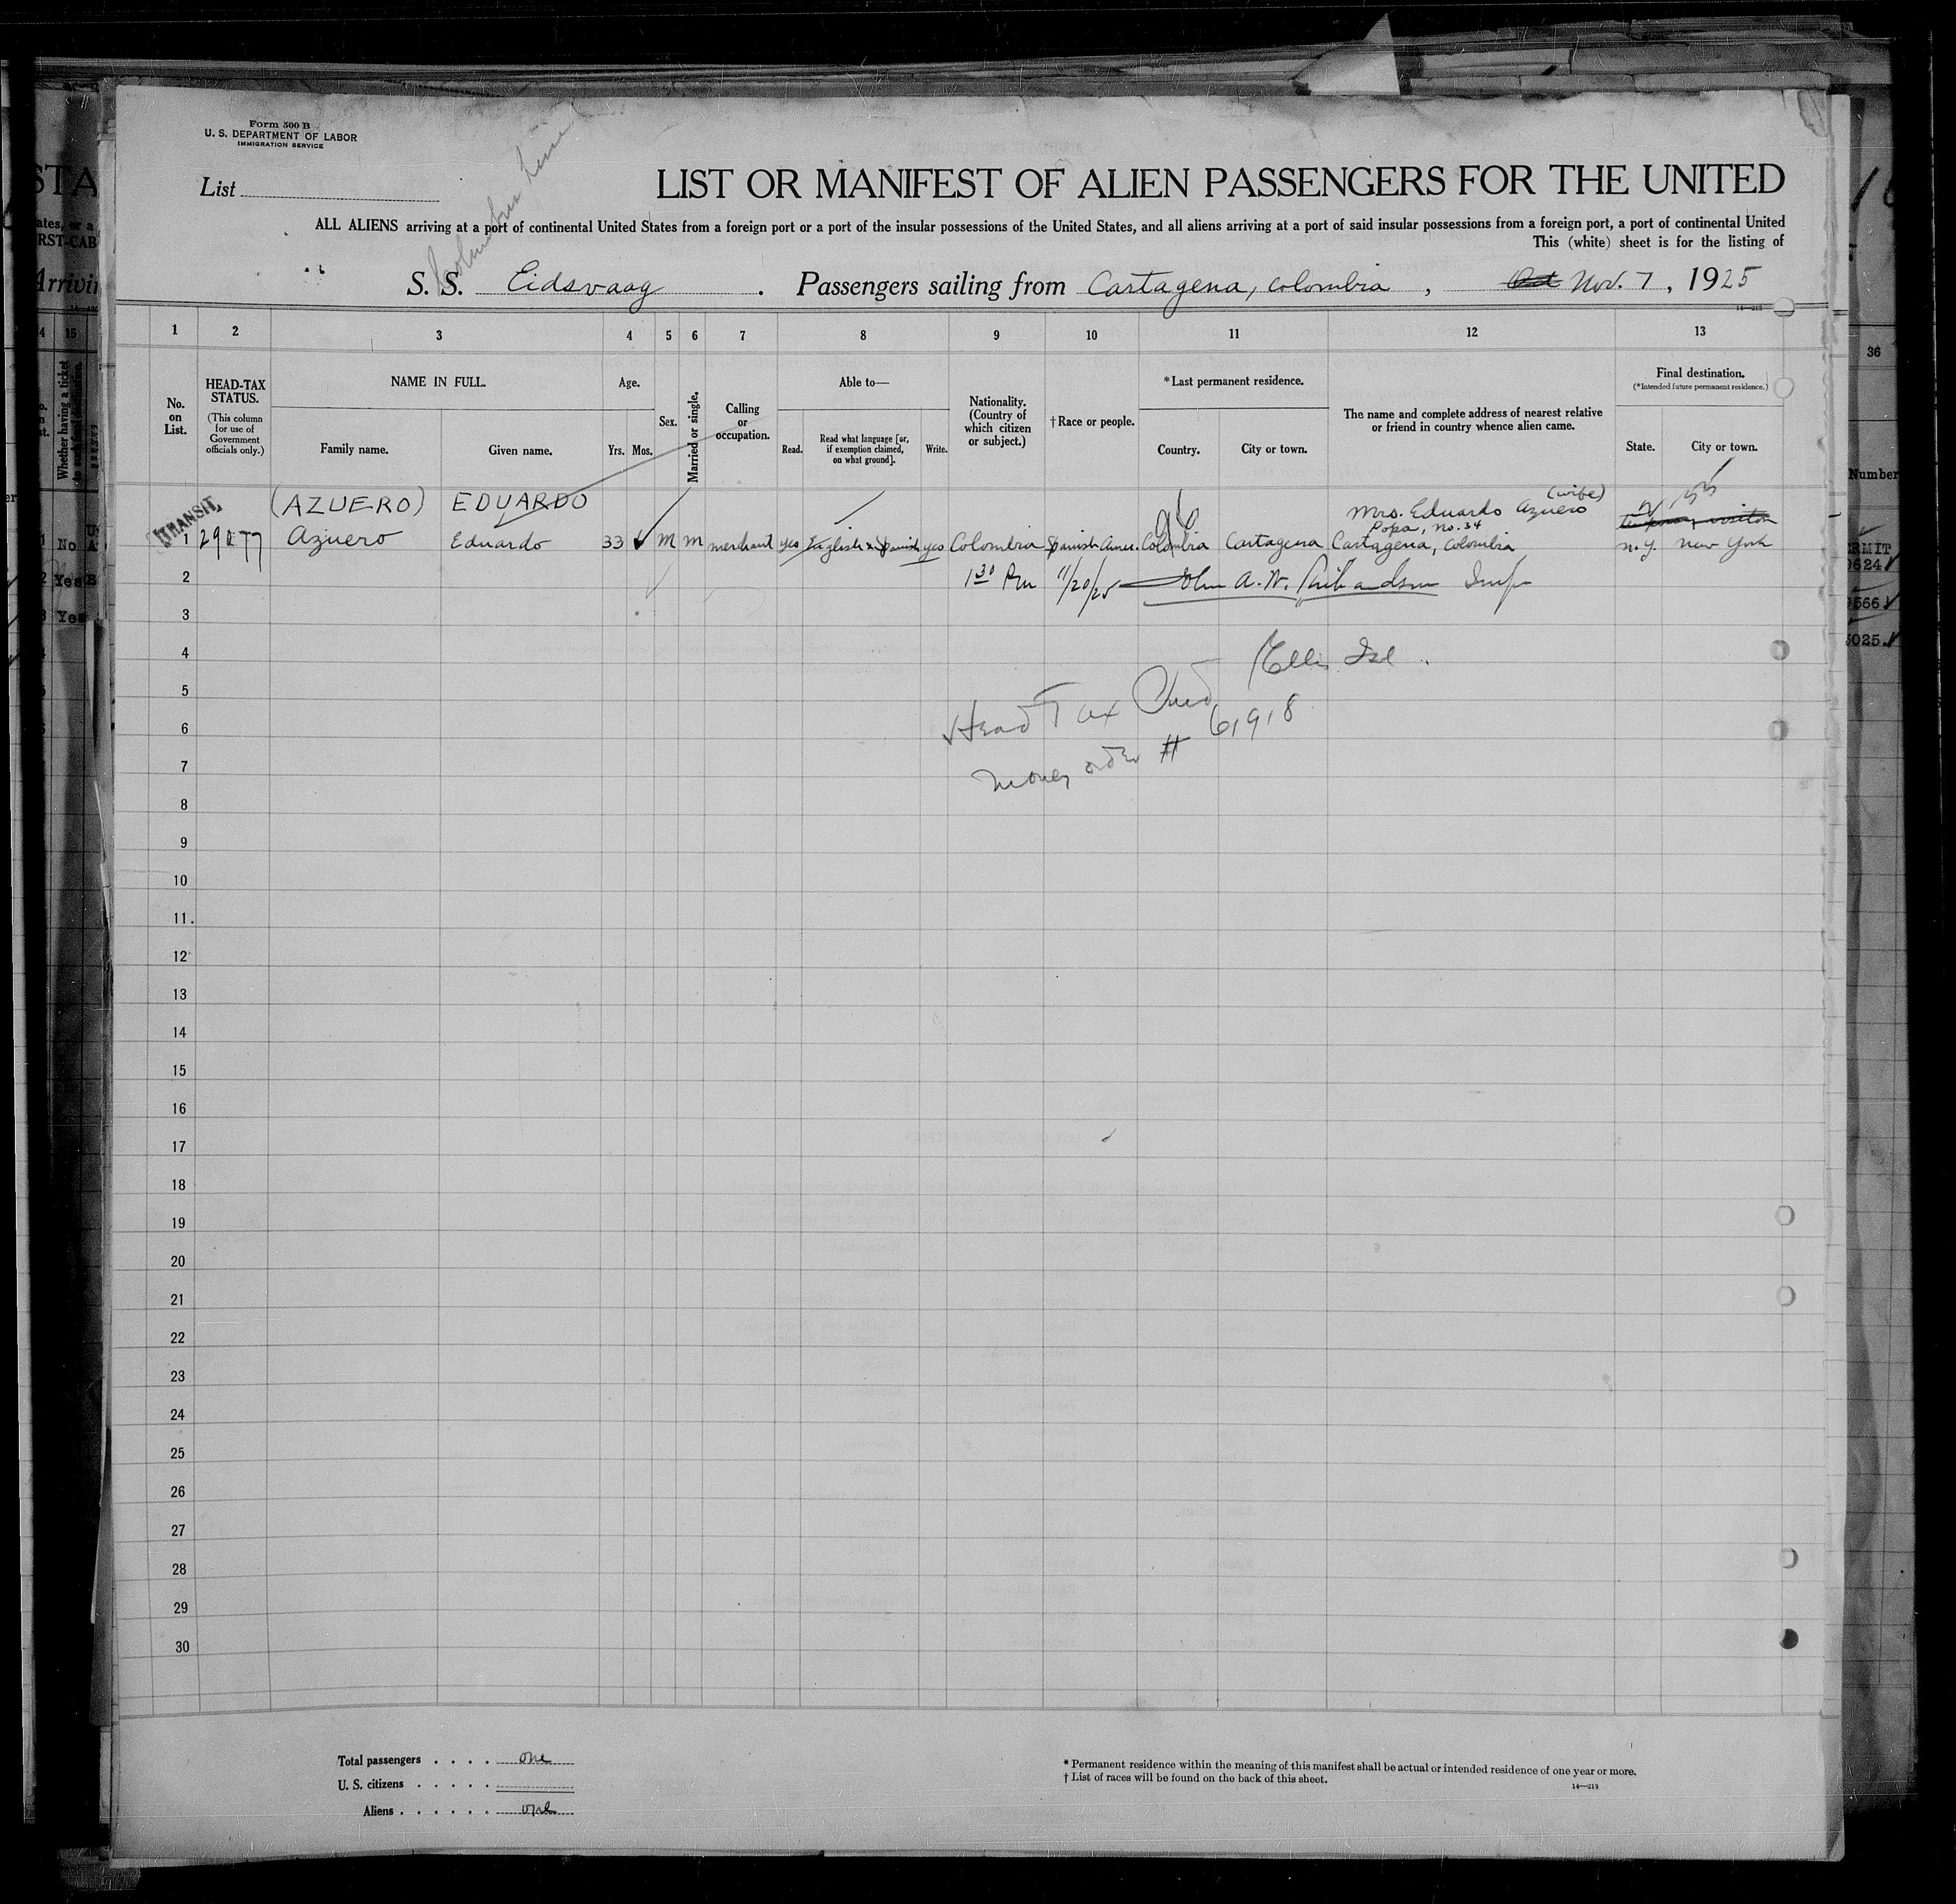 Form 500 B
U. S. DEPARTMENT OF LABOR
IMMIGRATION SERVICE
List
Columbus Line
LIST OR MANIFEST OF ALIEN PASSENGERS FOR THE UNITED
ALL ALIENS arriving at a port of continental United States from a foreign port or a port of the insular possessions of the United States, and all aliens arriving at a port of said insular possessions from a foreign port, a port of continental United
This (white) sheet is for the listing of
S. S. Eidsvaag . Passengers sailing from Cartagena, Colombia , Nov. 7, 1925
14—213
1 2 3 4 5 6 7 8 9 10 11 12 13
No. on List.
HEAD-TAX STATUS.
(This column for use of Government officials only.)
NAME IN FULL.
Family name. Given name.
Age.
Yrs. Mos.
Sex.
Married or single.
Calling or occupation.
Able to—
Read.
Read what language [or, if exemption claimed, on what ground].
Write.
Nationality. (Country of which citizen or subject.)
†Race or people.
*Last permanent residence.
Country. City or town.
The name and complete address of nearest relative or friend in country whence alien came.
Final destination.
(*Intended future permanent residence.)
State. City or town.
TRANSIT
(AZUERO) EDUARDO
Mrs. Eduardo Azuero (wife)
Popa, No. 34
1 Azuero Eduardo 33 M M merchant yes English & Spanish yes Colombia Spanish Amer. Colombia Cartagena Cartagena, Colombia N.Y. New York
2 1 30 Pm 11/20/25 John A. W. Richardson Insp
3
4 Ellis Isl.
5
6 Head Tax
7 money order # 61918
8
9
10
11.
12
13
14
15
16
17
18
19
20
21
22
23
24
25
26
27
28
29
30
Total passengers . . . . one
U. S. citizens . . . . .
Aliens . . . . . . one
* Permanent residence within the meaning of this manifest shall be actual or intended residence of one year or more.
† List of races will be found on the back of this sheet.
14—213
STA
RST-CAB
Arrivin
15
Whether having a ticket
No
Yes
Yes
36
Number